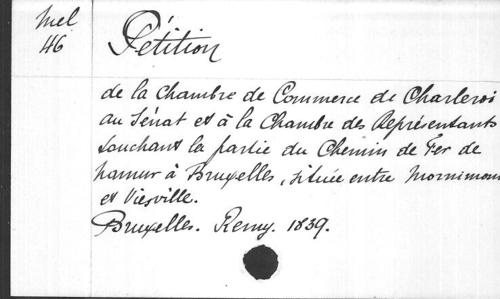 Mel
46
Pétition
de la Chambre de Commerce de Charleroi
au Sénat et à la Chambre des Représentants
touchant la partie du Chemin de Fer de
Namur à Bruxelles, située entre Mornimont
et Viesville.
Bruxelles. Remy. 1839.